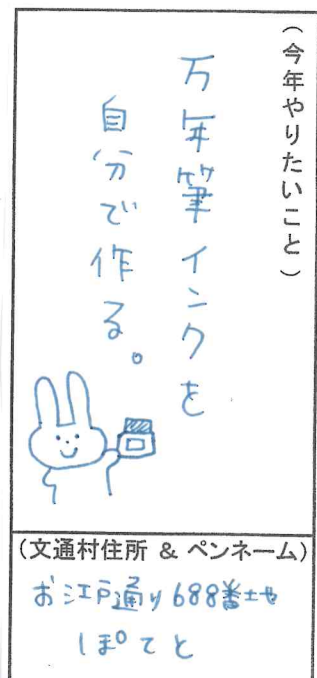 （今年やりたいこと）
万年筆インクを
自分で作る。
（文通村住所 & ペンネーム）
お江戸通り688番地
ぽてと